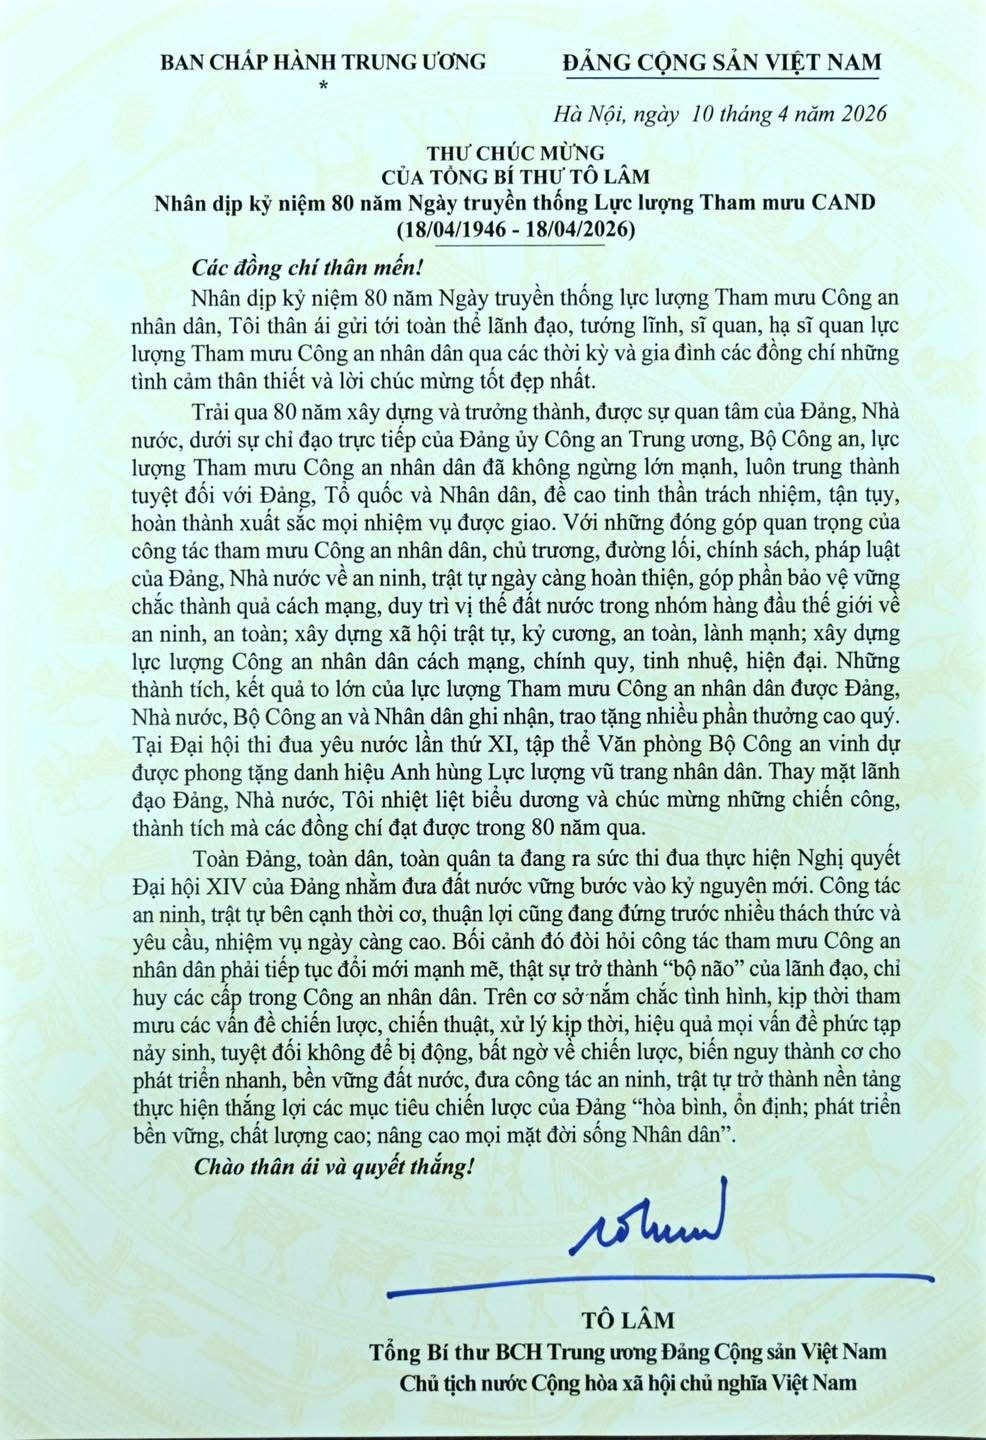 BAN CHẤP HÀNH TRUNG ƯƠNG
*
ĐẢNG CỘNG SẢN VIỆT NAM
Hà Nội, ngày 10 tháng 4 năm 2026
THƯ CHÚC MỪNG
CỦA TỔNG BÍ THƯ TÔ LÂM
Nhân dịp kỷ niệm 80 năm Ngày truyền thống Lực lượng Tham mưu CAND
(18/04/1946 - 18/04/2026)
Các đồng chí thân mến!
Nhân dịp kỷ niệm 80 năm Ngày truyền thống lực lượng Tham mưu Công an
nhân dân, Tôi thân ái gửi tới toàn thể lãnh đạo, tướng lĩnh, sĩ quan, hạ sĩ quan lực
lượng Tham mưu Công an nhân dân qua các thời kỳ và gia đình các đồng chí những
tình cảm thân thiết và lời chúc mừng tốt đẹp nhất.
Trải qua 80 năm xây dựng và trưởng thành, được sự quan tâm của Đảng, Nhà
nước, dưới sự chỉ đạo trực tiếp của Đảng ủy Công an Trung ương, Bộ Công an, lực
lượng Tham mưu Công an nhân dân đã không ngừng lớn mạnh, luôn trung thành
tuyệt đối với Đảng, Tổ quốc và Nhân dân, đề cao tinh thần trách nhiệm, tận tụy,
hoàn thành xuất sắc mọi nhiệm vụ được giao. Với những đóng góp quan trọng của
công tác tham mưu Công an nhân dân, chủ trương, đường lối, chính sách, pháp luật
của Đảng, Nhà nước về an ninh, trật tự ngày càng hoàn thiện, góp phần bảo vệ vững
chắc thành quả cách mạng, duy trì vị thế đất nước trong nhóm hàng đầu thế giới về
an ninh, an toàn; xây dựng xã hội trật tự, kỷ cương, an toàn, lành mạnh; xây dựng
lực lượng Công an nhân dân cách mạng, chính quy, tinh nhuệ, hiện đại. Những
thành tích, kết quả to lớn của lực lượng Tham mưu Công an nhân dân được Đảng,
Nhà nước, Bộ Công an và Nhân dân ghi nhận, trao tặng nhiều phần thưởng cao quý.
Tại Đại hội thi đua yêu nước lần thứ XI, tập thể Văn phòng Bộ Công an vinh dự
được phong tặng danh hiệu Anh hùng Lực lượng vũ trang nhân dân. Thay mặt lãnh
đạo Đảng, Nhà nước, Tôi nhiệt liệt biểu dương và chúc mừng những chiến công,
thành tích mà các đồng chí đạt được trong 80 năm qua.
Toàn Đảng, toàn dân, toàn quân ta đang ra sức thi đua thực hiện Nghị quyết
Đại hội XIV của Đảng nhằm đưa đất nước vững bước vào kỷ nguyên mới. Công tác
an ninh, trật tự bên cạnh thời cơ, thuận lợi cũng đang đứng trước nhiều thách thức và
yêu cầu, nhiệm vụ ngày càng cao. Bối cảnh đó đòi hỏi công tác tham mưu Công an
nhân dân phải tiếp tục đổi mới mạnh mẽ, thật sự trở thành “bộ não” của lãnh đạo, chỉ
huy các cấp trong Công an nhân dân. Trên cơ sở nắm chắc tình hình, kịp thời tham
mưu các vấn đề chiến lược, chiến thuật, xử lý kịp thời, hiệu quả mọi vấn đề phức tạp
nảy sinh, tuyệt đối không để bị động, bất ngờ về chiến lược, biến nguy thành cơ cho
phát triển nhanh, bền vững đất nước, đưa công tác an ninh, trật tự trở thành nền tảng
thực hiện thắng lợi các mục tiêu chiến lược của Đảng “hòa bình, ổn định; phát triển
bền vững, chất lượng cao; nâng cao mọi mặt đời sống Nhân dân”.
Chào thân ái và quyết thắng!
TÔ LÂM
Tổng Bí thư BCH Trung ương Đảng Cộng sản Việt Nam
Chủ tịch nước Cộng hòa xã hội chủ nghĩa Việt Nam